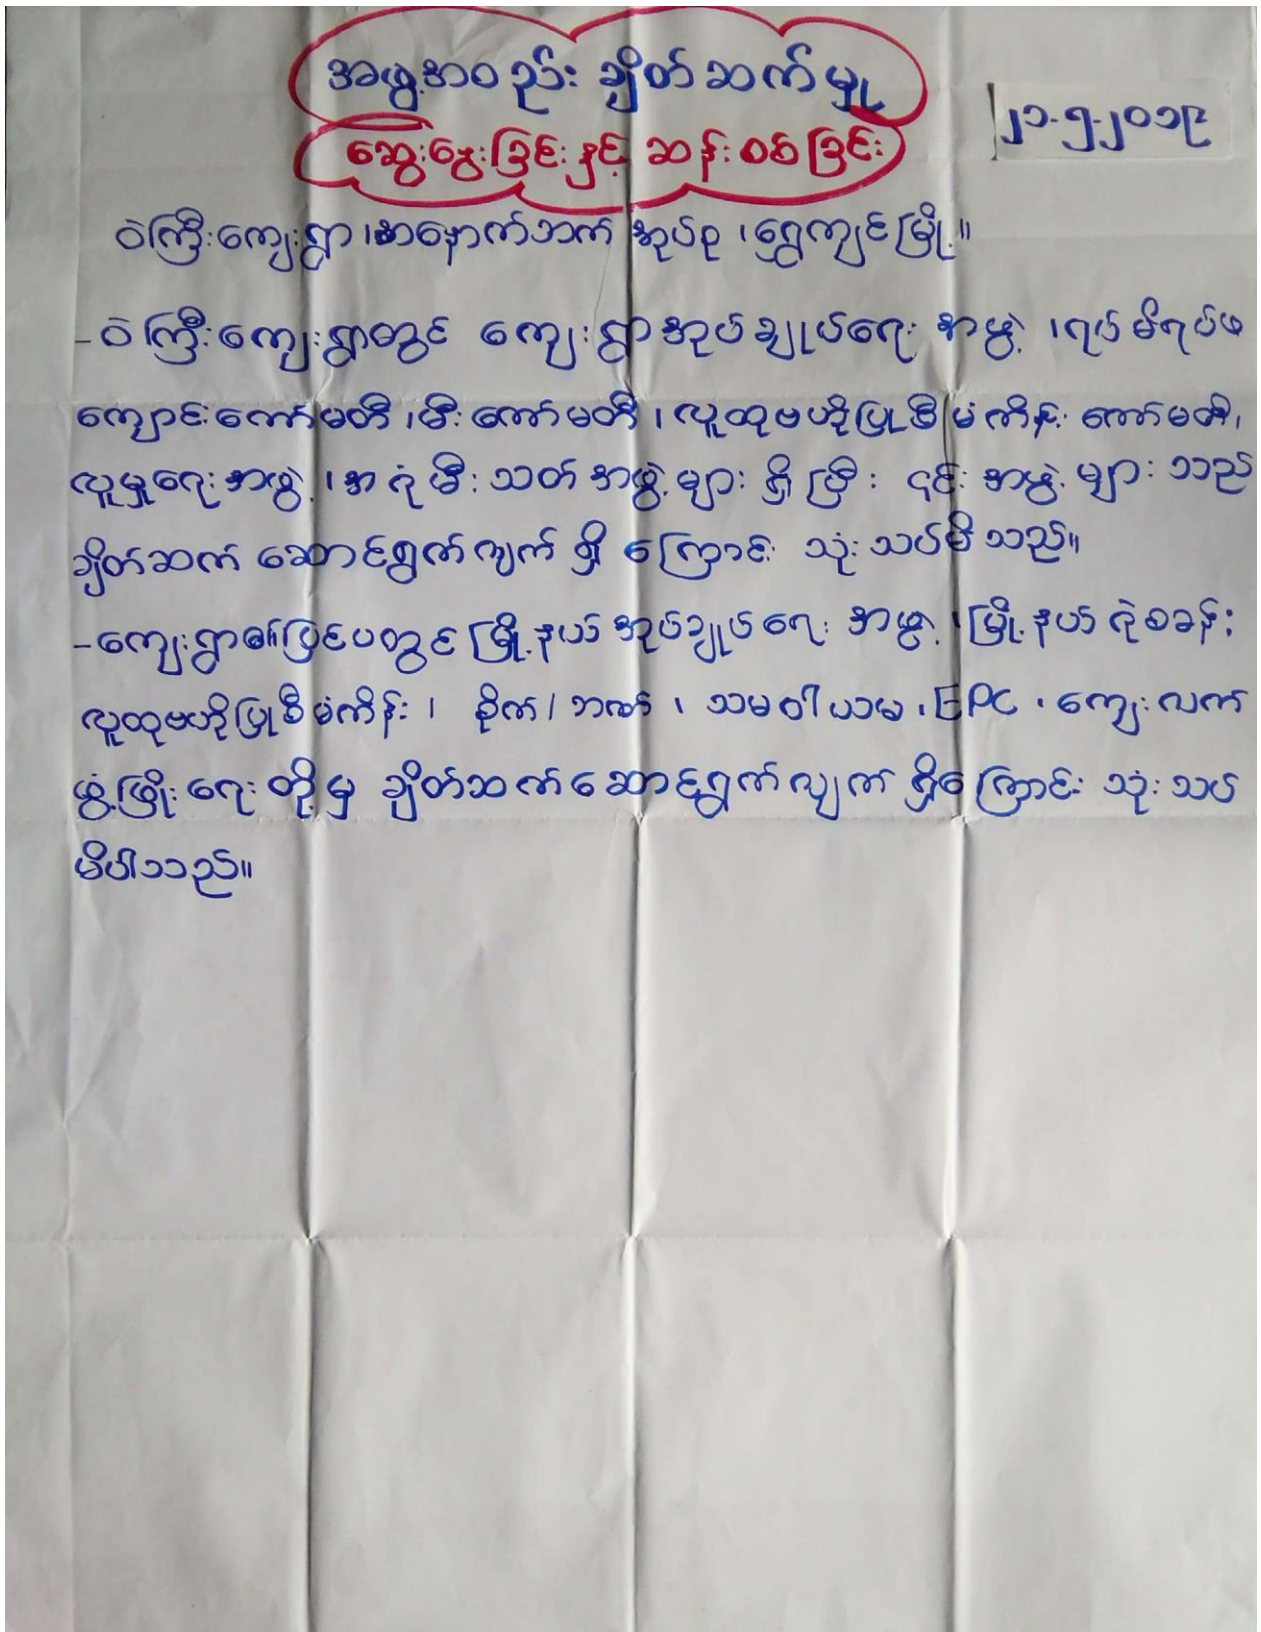 အဖွဲ့အစည်း ချိတ်ဆက်မှု
၂၁-၅-၂၀၁၉
ဆွေးနွေးခြင်းနှင့် ဆန်းစစ်ခြင်း
ဝဲကြီးကျေးရွာ၊အနောက်ဘက် အုပ်စု ၊ရွှေကျင်မြို့။
-ဝဲကြီးကျေးရွာတွင် ကျေးရွာအုပ်ချုပ်ရေး အဖွဲ့ ၊ရပ်မိရပ်ဖ
ကျောင်းကော်မတီ ၊မီးကော်မတီ ၊ လူထုဗဟိုပြုစီမံကိန်း ကော်မတီ၊
လူမှုရေးအဖွဲ့ ၊အရံမီးသတ်အဖွဲ့များ ရှိပြီး ၎င်းအဖွဲ့များသည်
ချိတ်ဆက် ဆောင်ရွက်လျက် ရှိကြောင်း သုံးသပ်မိသည်။
-ကျေးရွာ၏ပြင်ပတွင် မြို့နယ်အုပ်ချုပ်ရေး အဖွဲ့ ၊မြို့နယ်ရဲစခန်း
လူထုဗဟိုပြုစီမံကိန်း ၊ စိုက်/ဘဏ် ၊ သမဝါယမ ၊EPC ၊ကျေးလက်
ဖွံ့ဖြိုးရေးတို့မှ ချိတ်ဆက်ဆောင်ရွက်လျက် ရှိကြောင်း သုံးသပ်
မိပါသည်။